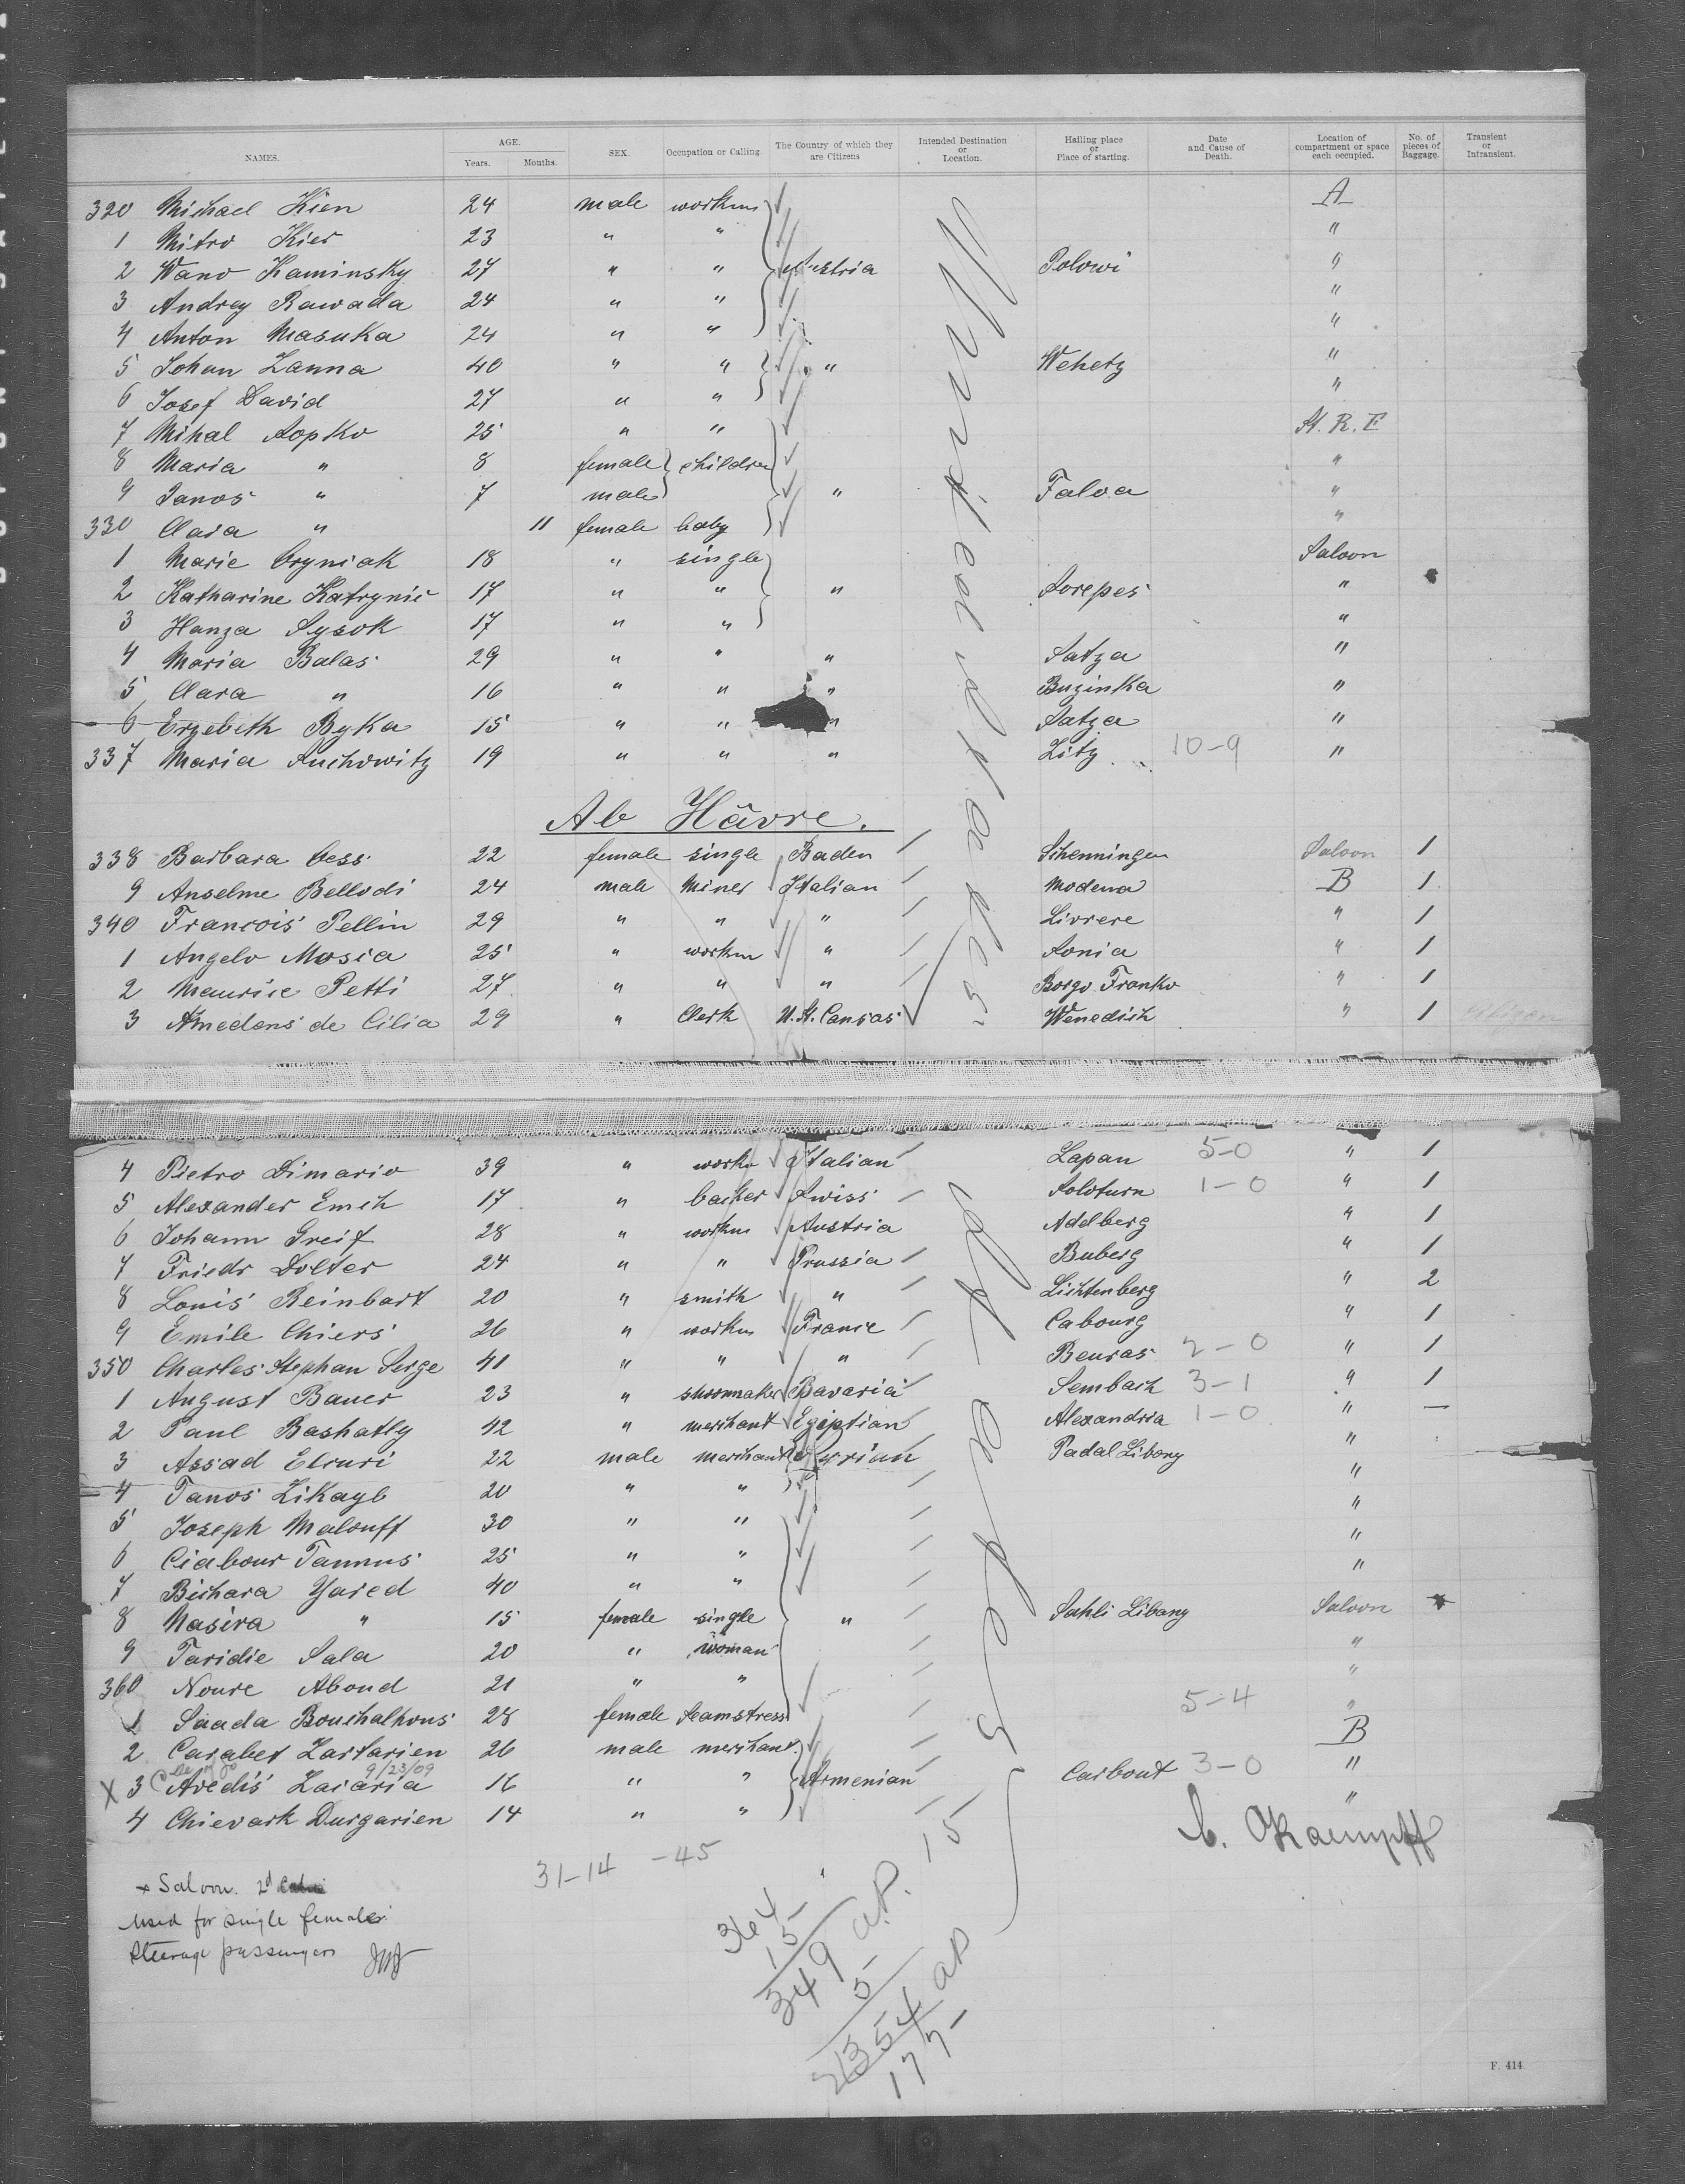 NAMES. AGE. Years. Months. SEX. Occupation or Calling. The Country of which they are Citizens Intended Destination or Location. Hailing place or Place of starting. Date and Cause of Death. Location of compartment or space each occupied. No. of pieces of Baggage. Transient or Intransient.
320 Michael Kien 24 male workm A
1 Mitro Kier 23 " " "
2 Wano Kaminsky 27 " " Austria Polowi "
3 Andrey Rawada 24 " " "
4 Anton Masuka 24 " " "
5 Johan Zanna 40 " " " Wehetz "
6 Josef David 27 " " "
7 Mihal Sopko 25 " " St. R. E
8 Maria " 8 female children "
9 Janos " 7 male " Falva "
330 Clara " 11 female baby "
1 Marie Cryniak 18 " single Saloon
2 Katharine Katrynic 17 " " " Sorepes "
3 Hanza Sysok 17 " " "
4 Maria Balas 29 " " " Satza "
5 Clara " 16 " " " Buzinka "
6 Erzebeth Byka 15 " " " Satza "
337 Maria Suchowitz 19 " " " Zitz 10-9 "
Ab Hâvre.
338 Barbara Cess 22 female single Baden Schenningen Saloon 1
9 Anselme Bellodi 24 male Miner Italian Modena B 1
340 Francois Pellin 29 " " " Livrere " 1
1 Angelo Mosia 25 " workm " Sonia " 1
2 Maurice Petti 27 " " " Borgo Franko " 1
3 Amedens de Cilia 29 " Clerk U. St. Cansas Wenedich " 1 citizen
4 Pietro Dimario 39 " workm Italian Lapan 5-0 " 1
5 Alexander Emch 17 " backer Swiss Soloturn 1-0 " 1
6 Johann Greif 28 " workm Austria Adelberg " 1
7 Friedr Dolter 24 " " Prussia Buberg " 1
8 Louis Reinbart 20 " smith " Lichtenberg " 2
9 Emile Chiers 26 " workm France Cabourg " 1
350 Charles Stephan Serge 41 " " " Beuras 2-0 " 1
1 August Bauer 23 " shoemaker Bavaria Sembach 3-1 " 1
2 Paul Bashatly 42 " merchant Egiptian Alexandria 1-0 " —
3 Assad Elruri 22 male merchant Syrian Padal Libany "
4 Tanos Likayb 20 " " "
5 Joseph Malouff 30 " " "
6 Ciabour Tannus 25 " " "
7 Bichara Yared 40 " " "
8 Nasira " 15 female single " Sahli Libany Saloon
9 Taridie Sala 20 " woman "
360 Noure Aboud 21 " " "
1 Saada Bouchalhous 28 female seamstress 5-4 "
2 Carabet Zartarien 26 male merchant B
9/23/09
X 3 Avedis Zacaria 16 " " Armenian Carbout 3-0 "
4 Chievark Durgarien 14 " " "
C. Kaempff
31-14 -45
x Saloon. 2d
used for single females
steerage passengers
364
15
349 a.P. 15
5
354 aP
177
F. 414